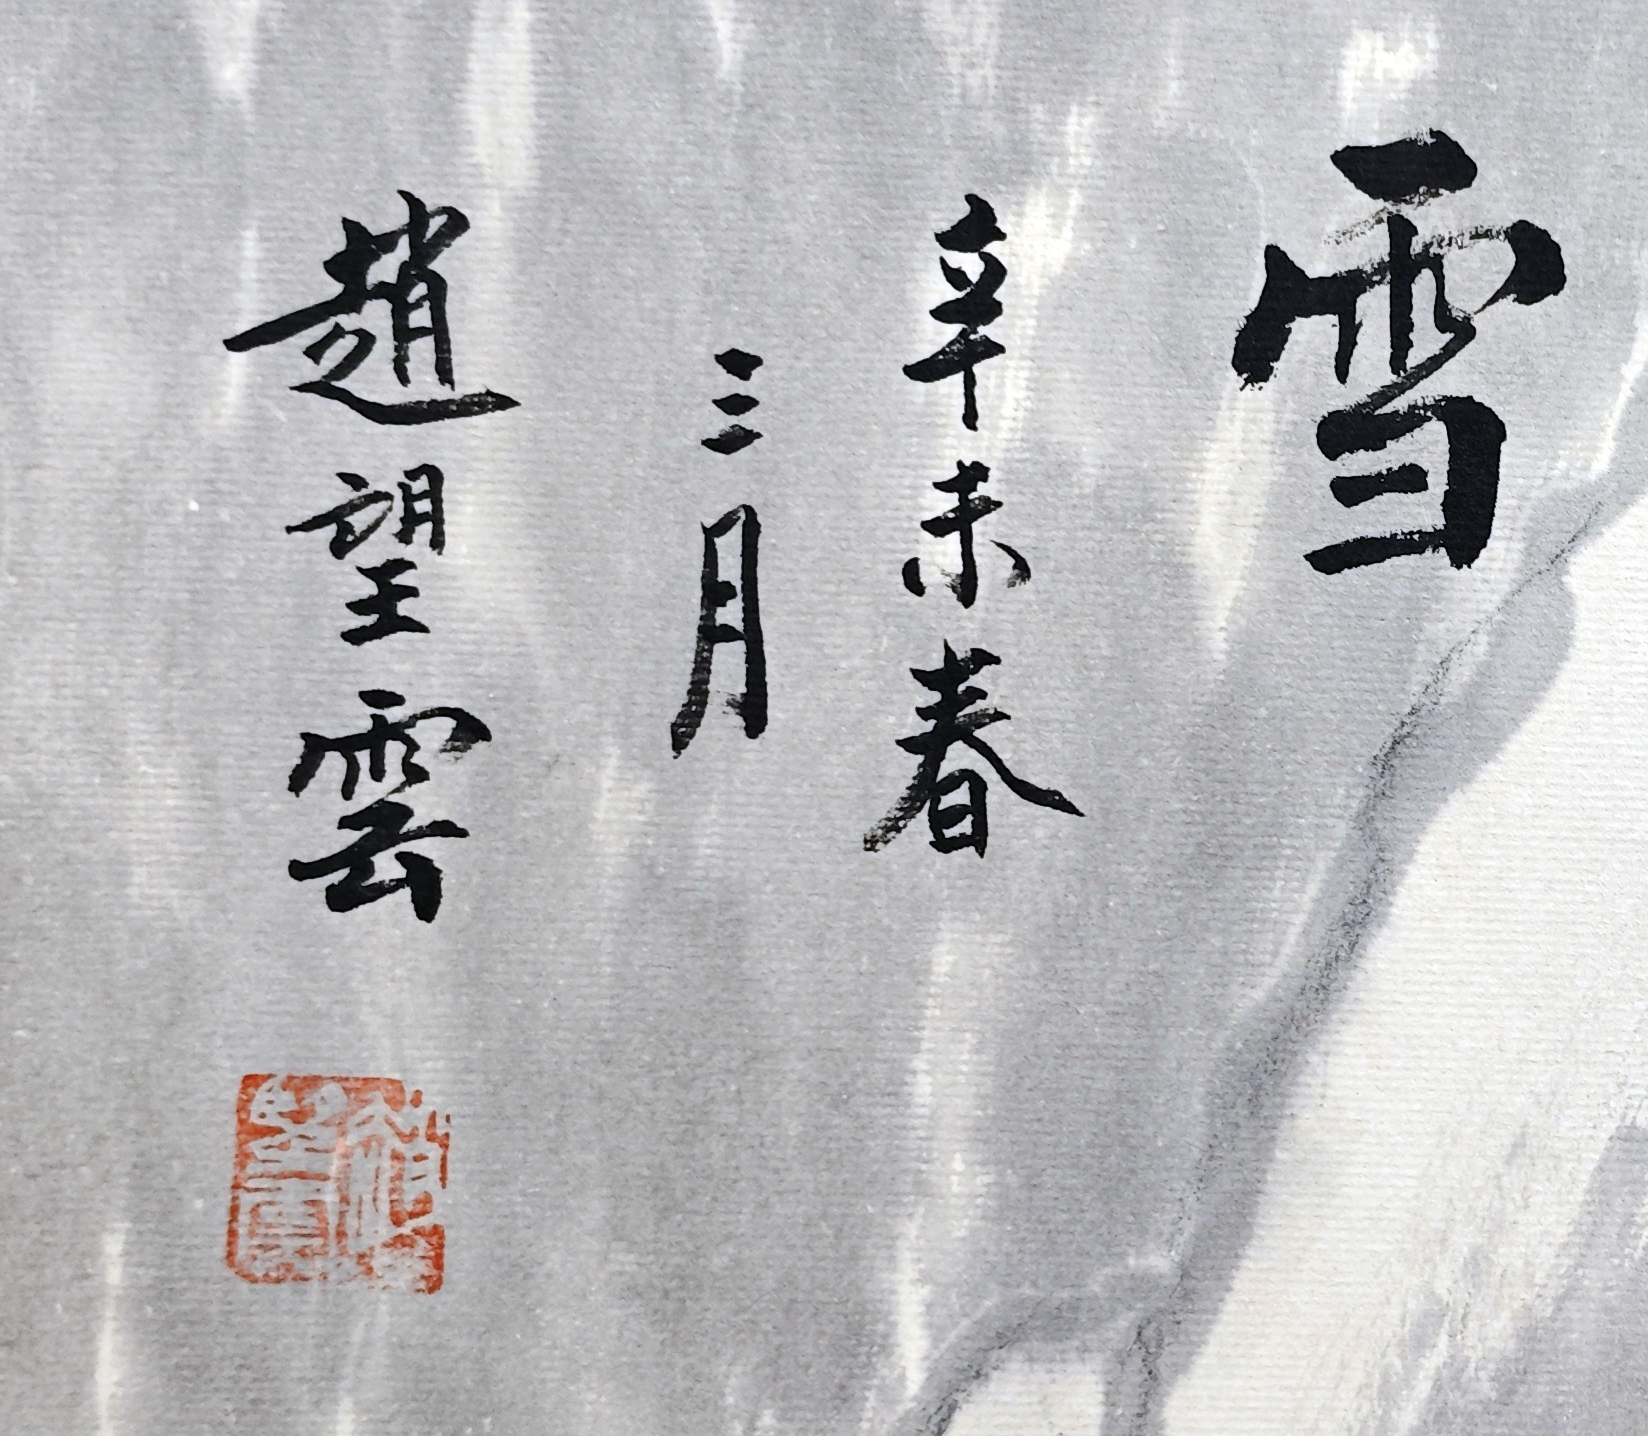 雪
辛未春
三月
趙望雲
趙望雲